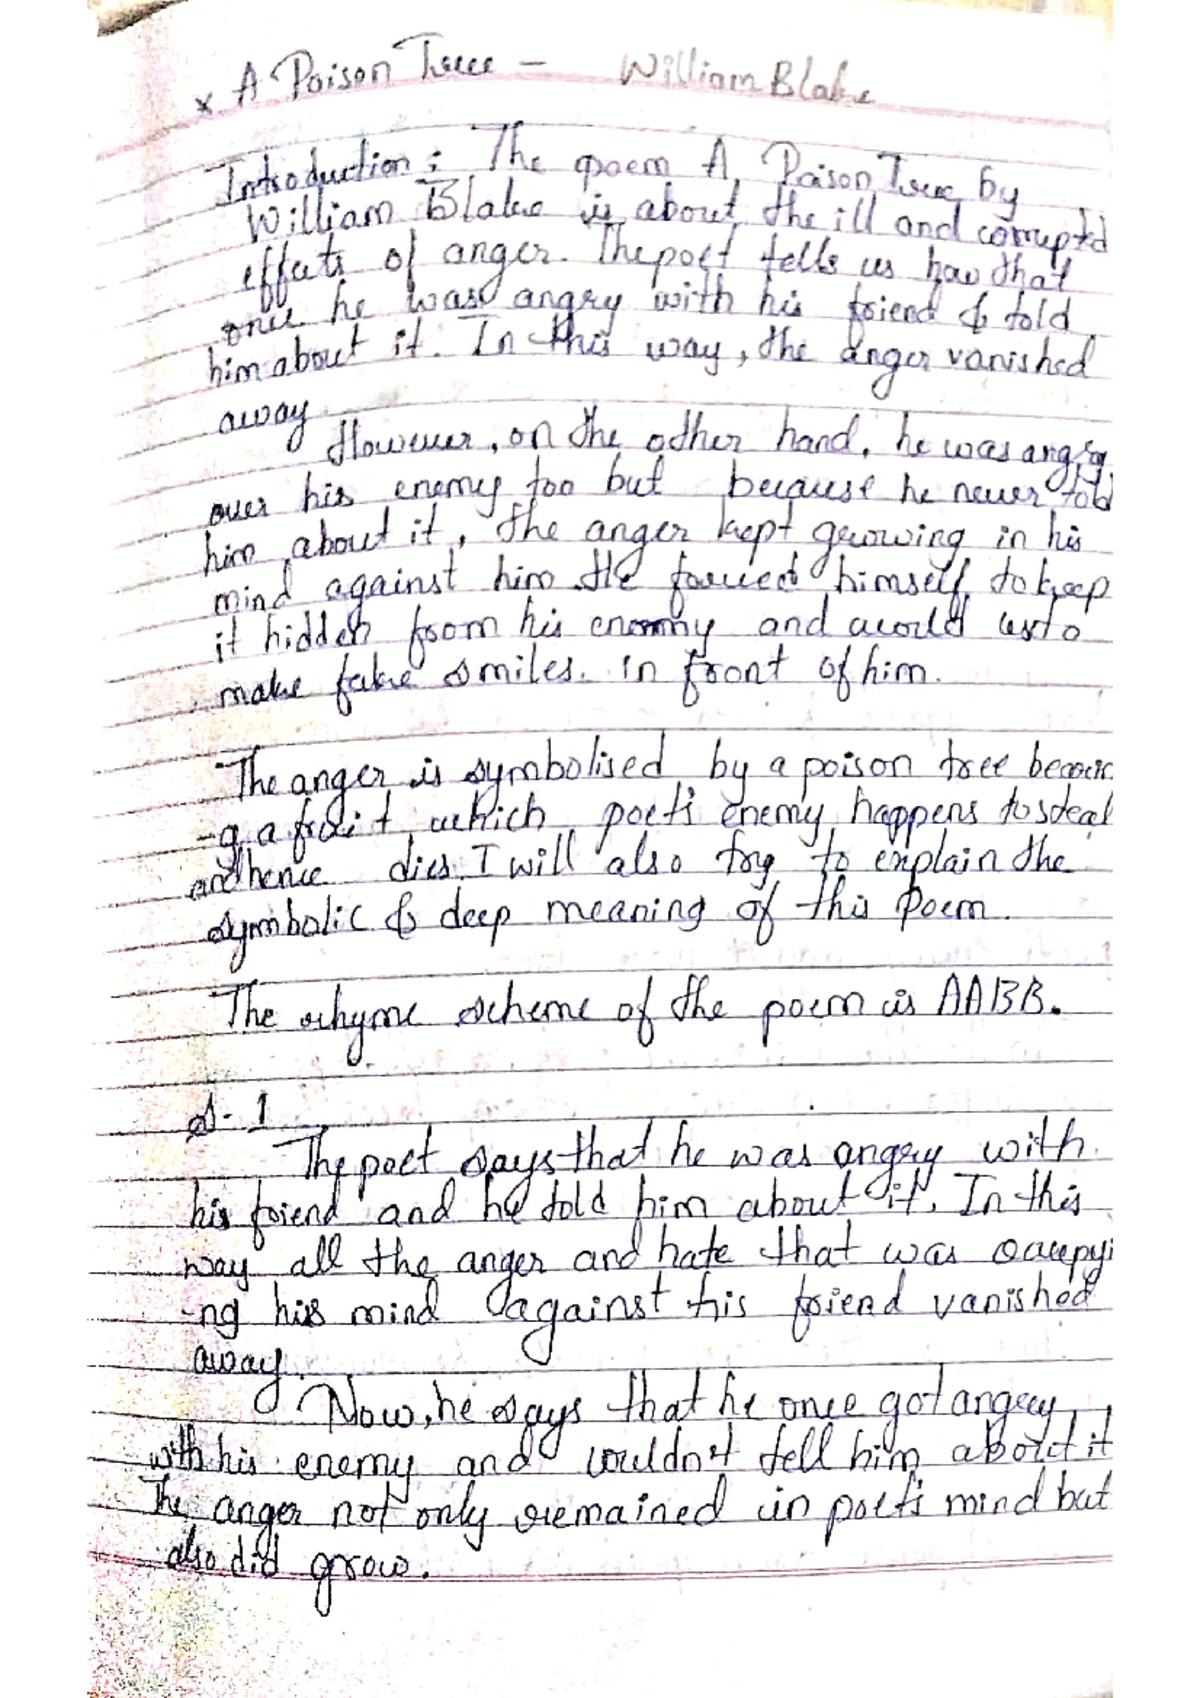 x A Poison Tree - William Blake
Introduction : The poem A Poison Tree by
William Blake is about the ill and corrupted
effects of anger. The poet tells us how that
once he was angry with his friend & told
him about it. In this way, the anger vanished
away
However, on the other hand, he was angry
over his enemy too but because he never told
him about it, the anger kept growing in his
mind against him. He forced himself to keep
it hidden from his enemy and would
make fake smiles. in front of him.
The anger is symbolised by a poison tree bearin
-g a fruit which poet's enemy happens to steal
and hence dies. I will also try to explain the
symbolic & deep meaning of this poem.
The rhyme scheme of the poem is AABB.
S-1
The poet says that he was angry with
his friend and he told him about it. In this
way all the anger and hate that was occupyi
-ng his mind against his friend vanished
away.
Now, he says that he once got angry
with his enemy and couldn't tell him about it
The anger not only remained in poet's mind but
also did grow.